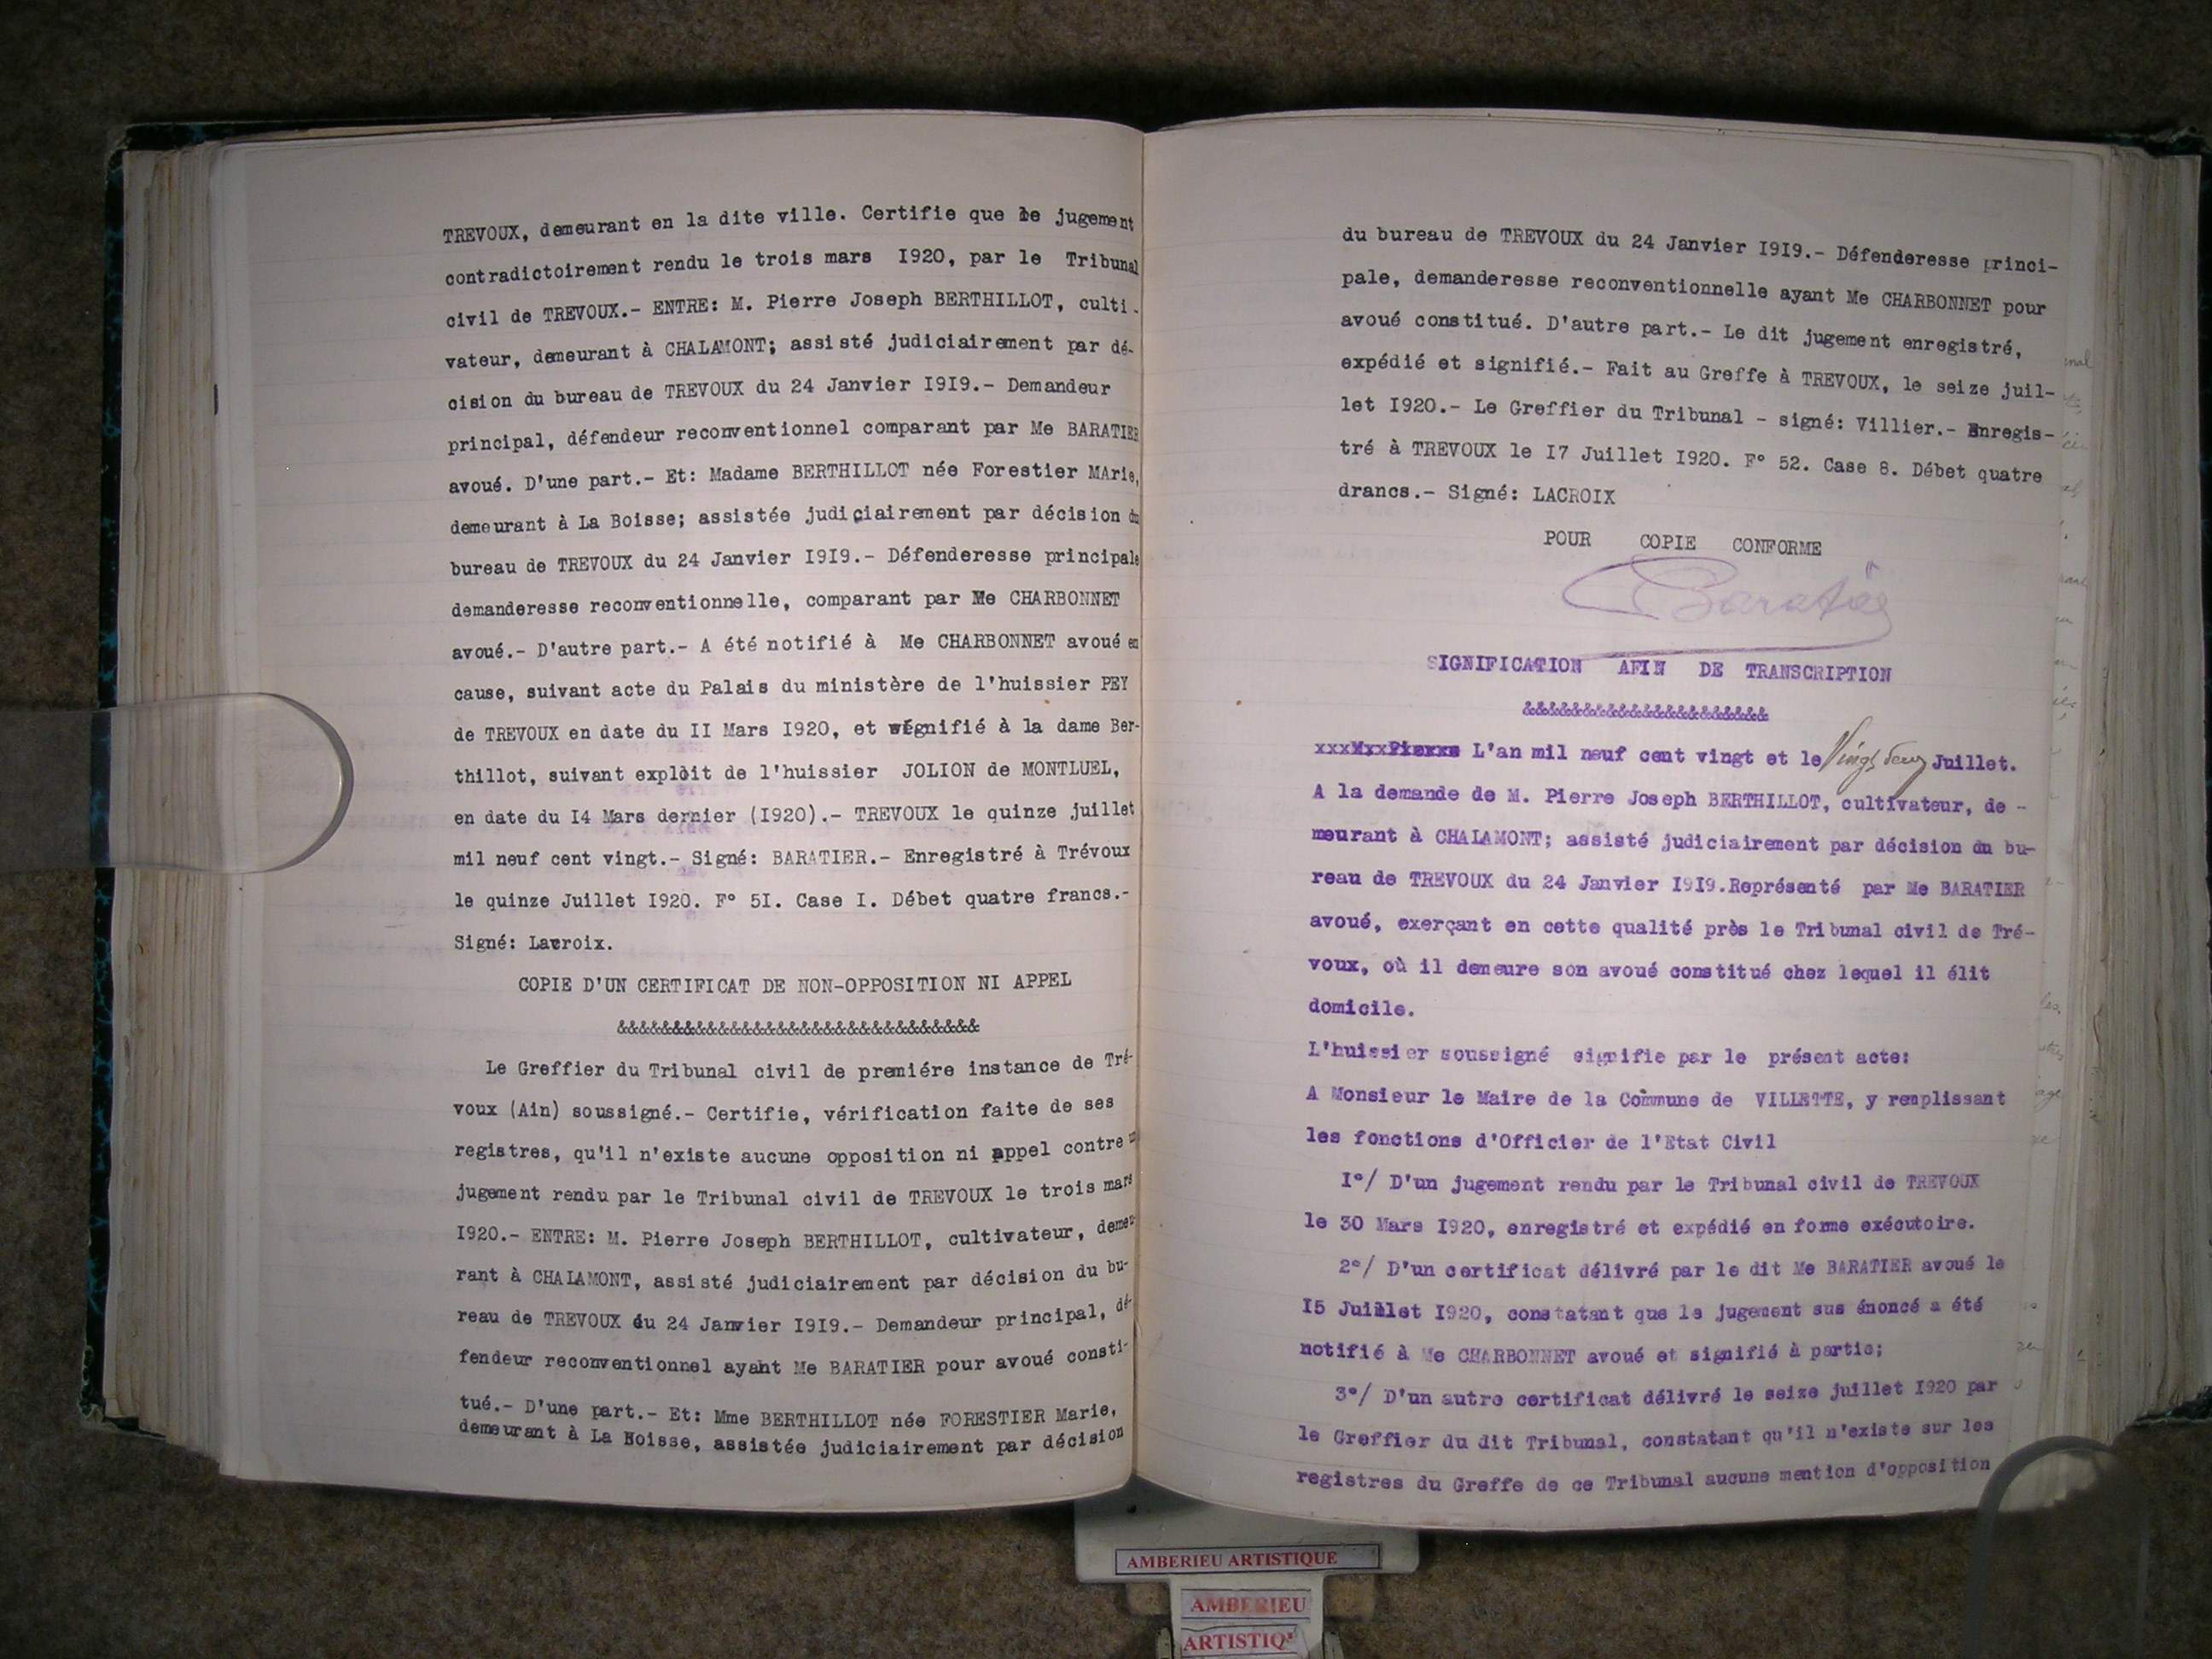 TREVOUX, demeurant en la dite ville. Certifie que le jugement
contradictoirement rendu le trois mars I920, par le Tribunal
civil de TREVOUX.- ENTRE: M. Pierre Joseph BERTHILLOT, culti-
vateur, demeurant à CHALAMONT; assisté judiciairement par dé-
cision du bureau de TREVOUX du 24 Janvier I9I9.- Demandeur
principal, défendeur reconventionnel comparant par Me BARATIER
avoué. D'une part.- Et: Madame BERTHILLOT née Forestier MArie,
demeurant à La Boisse; assistée judiciairement par décision du
bureau de TREVOUX du 24 Janvier I9I9.- Défenderesse principale
demanderesse reconventionnelle, comparant par Me CHARBONNET
avoué.- D'autre part.- A été notifié à Me CHARBONNET avoué en
cause, suivant acte du Palais du ministère de l'huissier PEY
de TREVOUX en date du II Mars I920, et signifié à la dame Ber-
thillot, suivant exploit de l'huissier JOLION de MONTLUEL,
en date du I4 Mars dernier (I920).- TREVOUX le quinze juillet
mil neuf cent vingt.- Signé: BARATIER.- Enregistré à Trévoux
le quinze Juillet I920. F° 5I. Case I. Débet quatre francs.-
Signé: Lacroix.
COPIE D'UN CERTIFICAT DE NON-OPPOSITION NI APPEL
&&&&&&&&&&&&&&&&&&&&&&&&&&&&&&
Le Greffier du Tribunal civil de premiére instance de Tré-
voux (Ain) soussigné.- Certifie, vérification faite de ses
registres, qu'il n'existe aucune opposition ni appel contre un
jugement rendu par le Tribunal civil de TREVOUX le trois mars
I920.- ENTRE: M. Pierre Joseph BERTHILLOT, cultivateur, demeu-
rant à CHALAMONT, assisté judiciairement par décision du bu-
reau de TREVOUX du 24 Janvier I9I9.- Demandeur principal, dé-
fendeur reconventionnel ayant Me BARATIER pour avoué consti-
tué.- D'une part.- Et: Mme BERTHILLOT née FORESTIER Marie,
demeurant à La Boisse, assistée judiciairement par décision
du bureau de TREVOUX du 24 Janvier I9I9.- Défenderesse princi-
pale, demanderesse reconventionnelle ayant Me CHARBONNET pour
avoué constitué. D'autre part.- Le dit jugement enregistré,
expédié et signifié.- Fait au Greffe à TREVOUX, le seize juil-
let I920.- Le Greffier du Tribunal - signé: Villier.- Enregis-
tré à TREVOUX le I7 Juillet I920. F° 52. Case 8. Débet quatre
drancs.- Signé: LACROIX
POUR COPIE CONFORME
Baratier
SIGNIFICATION AFIN DE TRANSCRIPTION
&&&&&&&&&&&&&&&&&&&&&
xxxMxxPierre L'an mil neuf cent vingt et le Vingt deux Juillet.
A la demande de M. Pierre Joseph BERTHILLOT, cultivateur, de -
meurant à CHALAMONT; assisté judiciairement par décision du bu-
reau de TREVOUX du 24 Janvier I9I9.Représenté par Me BARATIER
avoué, exerçant en cette qualité près le Tribunal civil de Tré-
voux, où il demeure son avoué constitué chez lequel il élit
domicile.
L'huissier soussigné signifie par le présent acte:
A Monsieur le Maire de la Commune de VILLETTE, y remplissant
les fonctions d'Officier de l'Etat Civil
I°/ D'un jugement rendu par le Tribunal civil de TREVOUX
le 30 Mars I920, enregistré et expédié en forme exécutoire.
2°/ D'un certificat délivré par le dit Me BARATIER avoué le
I5 Juillet I920, constatant que le jugement sus énoncé a été
notifié à Me CHARBONNET avoué et signifié à partie;
3°/ D'un autre certificat délivré le seize juillet I920 par
le Greffier du dit Tribunal, constatant qu'il n'existe sur les
registres du Greffe de ce Tribunal aucune mention d'opposition
AMBERIEU ARTISTIQUE
AMBERIEU
ARTISTIQ